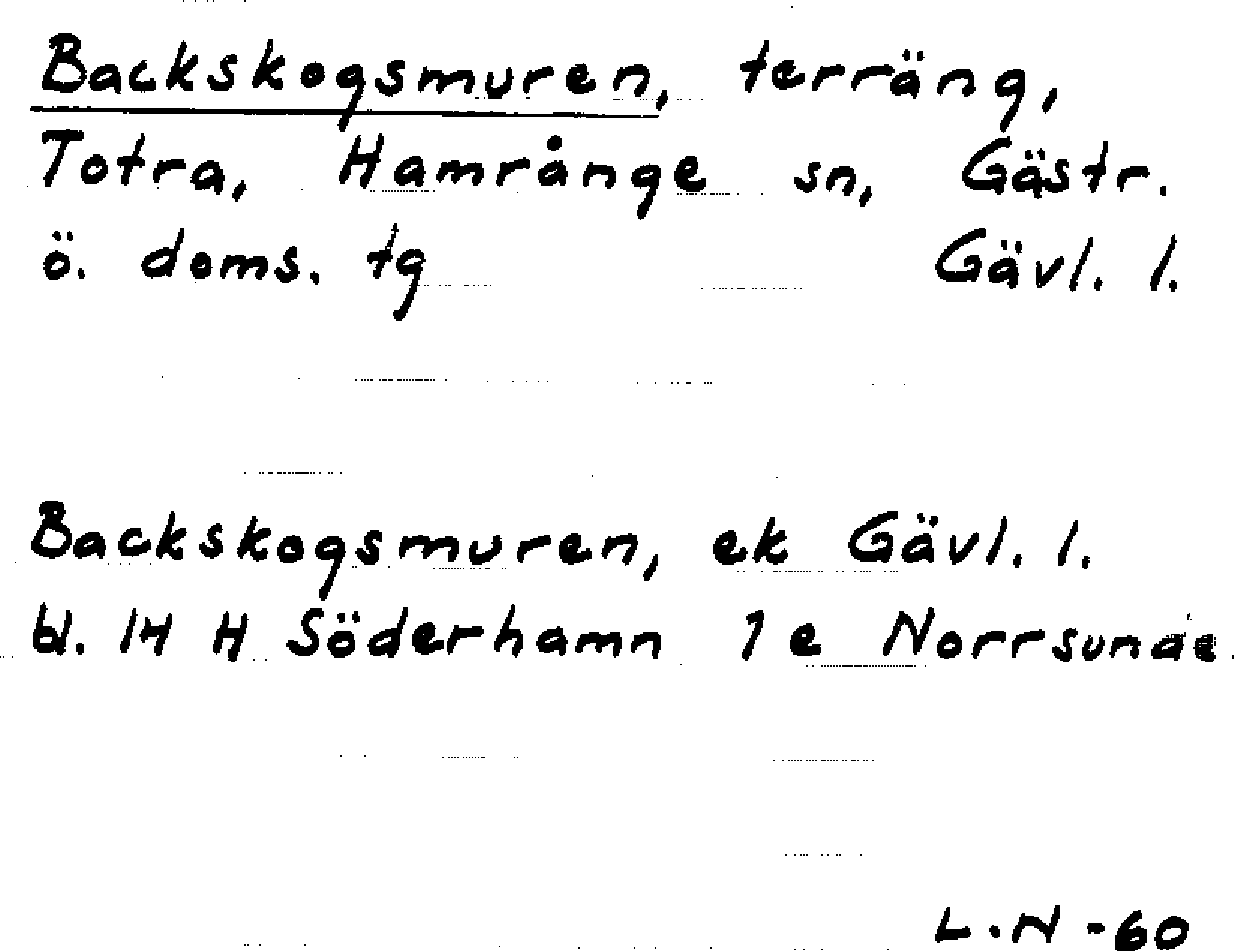 Backskogsmuren, terräng,
Totra, Hamrånge sn, Gästr.
ö. doms. tg Gävl. l.
Backskogsmuren, ek Gävl. l.
bl. 14 H Söderhamn 1 e Norrsunde
L.N -60